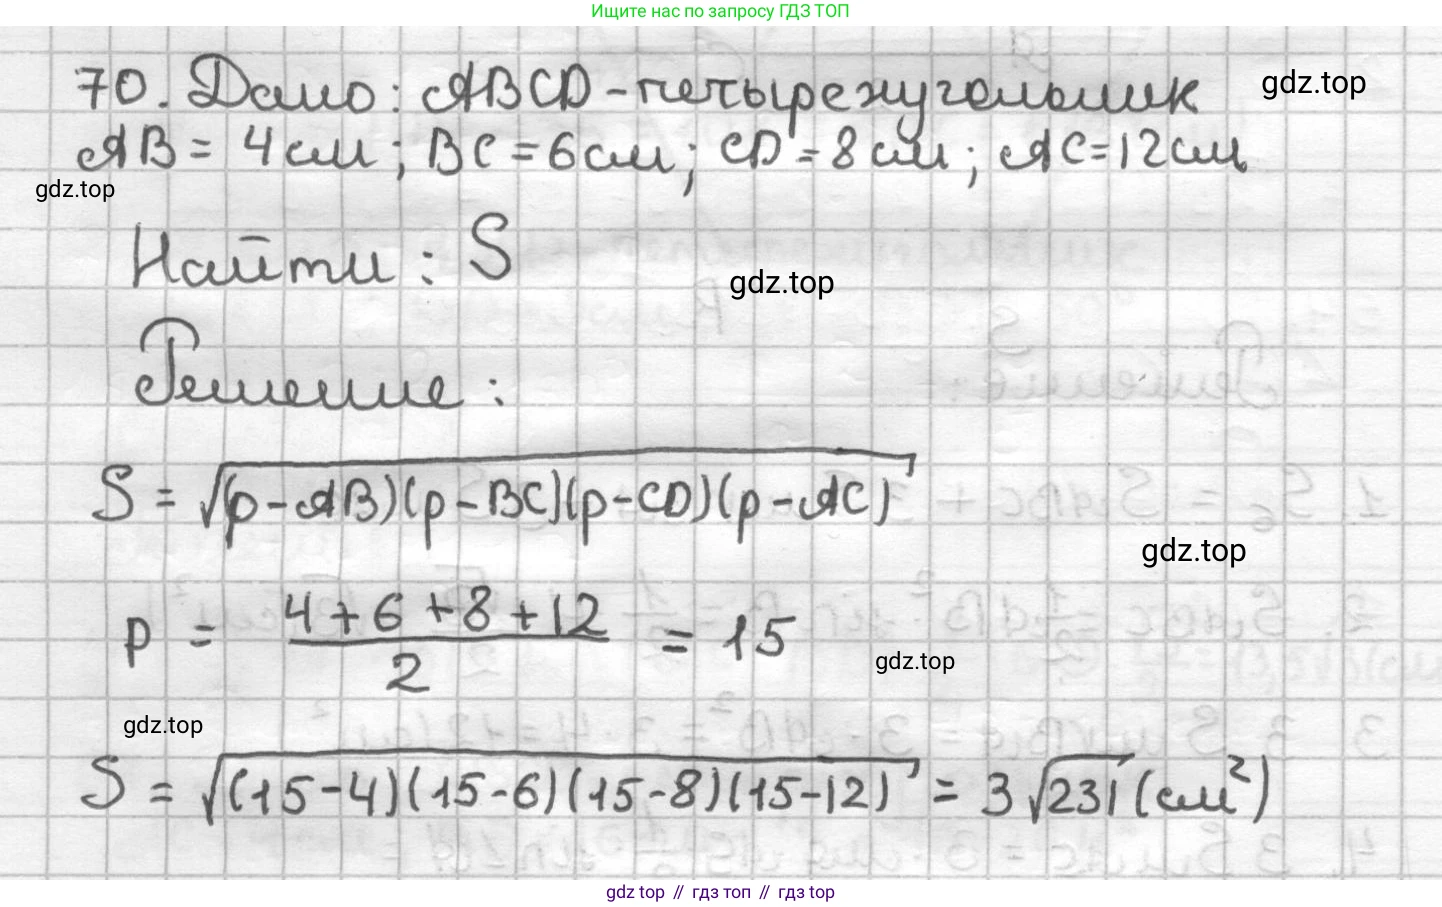 Ищите нас по запросу ГДЗ ТОП
70. Дано: ABCD - четырехугольник
gdz.top
AB = 4 см; BC = 6 см; CD = 8 см; AC = 12 см.
gdz.top
Найти: S
gdz.top
Решение:
S = √(p-AB)(p-BC)(p-CD)(p-AC)
gdz.top
p = (4+6+8+12)/2 = 15
gdz.top
gdz.top
S = √(15-4)(15-6)(15-8)(15-12) = 3√231 (см²)
gdz top // гдз топ // гдз top